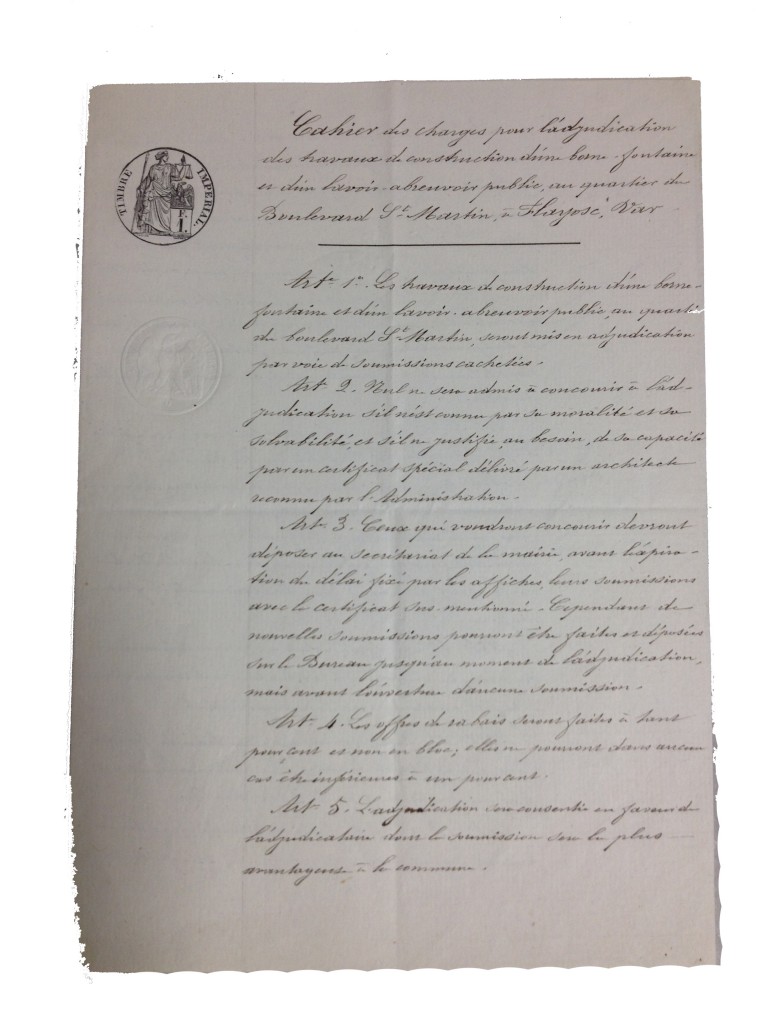 TIMBRE IMPERIAL.
F.
1.
Cahier des charges pour l'adjudication
des travaux de construction d'une borne-fontaine
et d'un lavoir-abreuvoir public, au quartier du
Boulevard St Martin, à Flayosc, Var
Art. 1er. Les travaux de construction d'une borne-
fontaine et d'un lavoir-abreuvoir public, au quartier
du boulevard St Martin, seront mis en adjudication
par voie de soumissions cachetées.
Art. 2. Nul ne sera admis à concourir à l'ad-
judication s'il n'est connu par sa moralité et sa
solvabilité, et s'il ne justifie, au besoin, de sa capacité
par un certificat spécial délivré par un architecte
reconnu par l'Administration.
Art. 3. Ceux qui voudront concourir devront
déposer au secrétariat de la mairie, avant l'expira-
tion du délai fixé par les affiches, leurs soumissions
avec le certificat sus-mentionné. Cependant de
nouvelles soumissions pourront être faites et déposées
sur le Bureau jusqu'au moment de l'adjudication,
mais avant l'ouverture d'aucune soumission.
Art. 4. Les offres de rabais seront faites à tant
pour cent et non en bloc; elles ne pourront dans aucun
cas être inférieures à un pour cent.
Art. 5. L'adjudication sera consentie en faveur de
l'adjudicataire dont la soumission sera la plus
avantageuse à la commune.